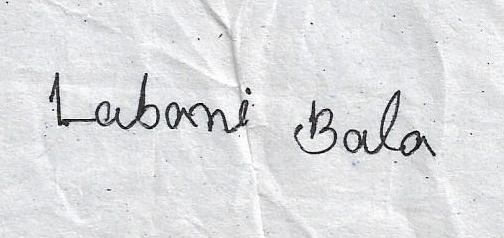 Labani Bala